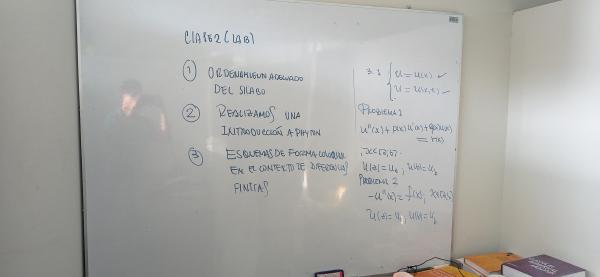 CLASE 2 (LAB)
① ORDENAMIENTO ADECUADO
DEL SILABO
② REALIZAMOS UNA
INTRODUCCIÓN A PHYTON
③ ESQUEMAS DE FORMA
EN EL CONTEXTO DE DIFERENCIAS
FINITAS
u = u(x) ✓
u = u(x,t) ✓
PROBLEMA 1
u''(x) + p(x)u'(x) + q(x)u(x)
= r(x)
PROBLEMA 2
-u''(x) = f(x),